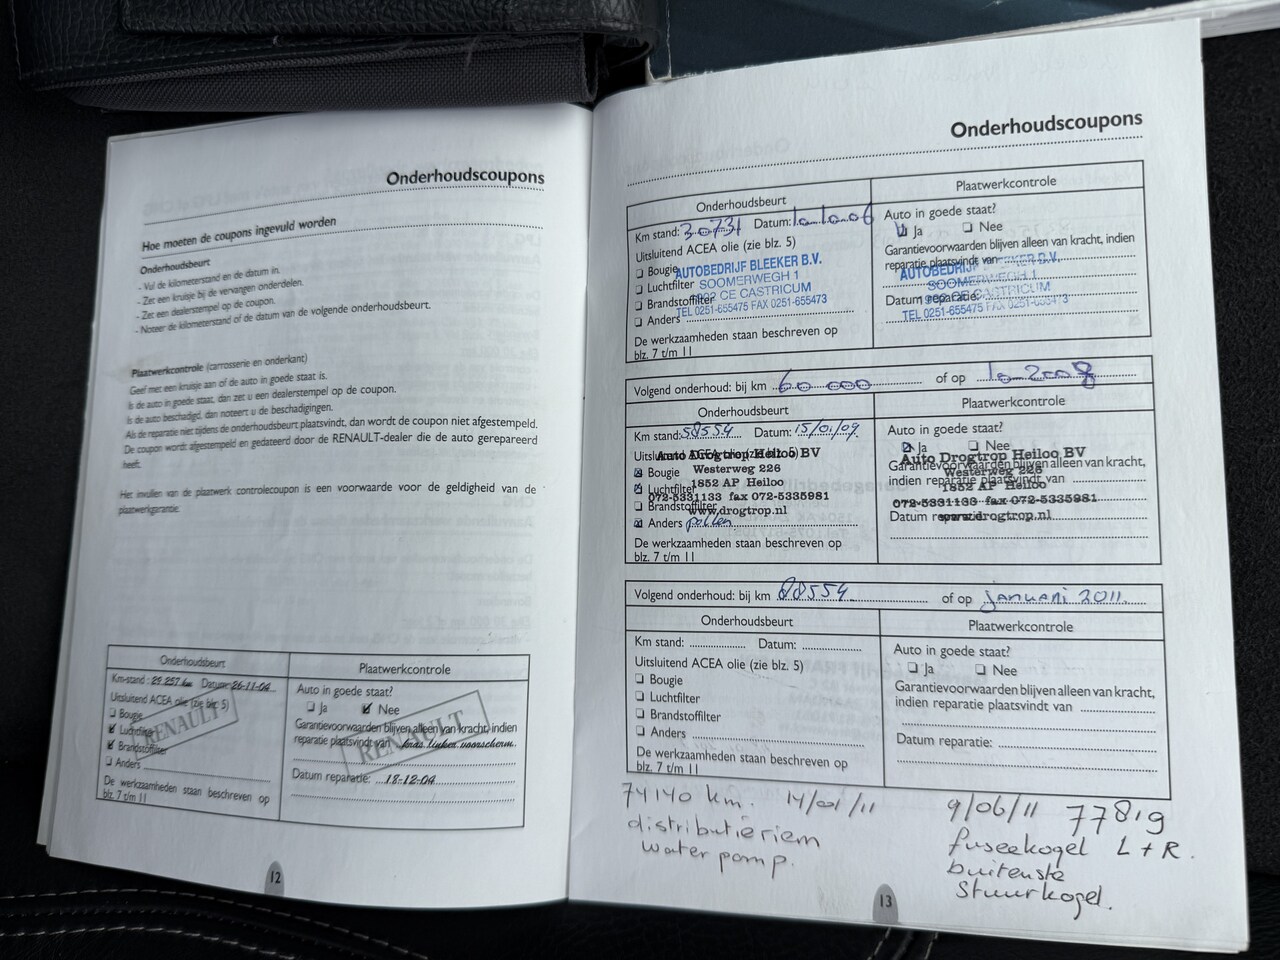 Onderhoudscoupons
Hoe moeten de coupons ingevuld worden
Onderhoudsbeurt
- Vul de kilometerstand en de datum in.
- Zet een kruisje bij de vervangen onderdelen.
- Zet een dealerstempel op de coupon.
- Noteer de kilometerstand of de datum van de volgende onderhoudsbeurt.
Plaatwerkcontrole (carrosserie en onderkant)
Geef met een kruisje aan of de auto in goede staat is.
Is de auto in goede staat, dan zet u een dealerstempel op de coupon.
Is de auto beschadigd, dan noteert u de beschadigingen.
Als de reparatie niet tijdens de onderhoudsbeurt plaatsvindt, dan wordt de coupon niet afgestempeld.
De coupon wordt afgestempeld en gedateerd door de RENAULT-dealer die de auto gerepareerd
heeft.
Het invullen van de plaatwerk controlecoupon is een voorwaarde voor de geldigheid van de
plaatwerkgarantie.
Onderhoudsbeurt
Km-stand: 29.257 km Datum: 26-11-04
Uitsluitend ACEA olie (zie blz. 5)
Bougie
Luchtfilter
Brandstoffilter
Anders
De werkzaamheden staan beschreven op
blz. 7 t/m 11
RENAULT
Plaatwerkcontrole
Auto in goede staat?
Ja Nee
Garantievoorwaarden blijven alleen van kracht, indien
reparatie plaatsvindt van kras linker voorscherm.
Datum reparatie: 18-12-04
RENAULT
12
Onderhoudscoupons
Onderhoudsbeurt
Km stand: 30731 Datum: 10.10.06
Uitsluitend ACEA olie (zie blz. 5)
Bougie
Luchtfilter
Brandstoffilter
Anders
AUTOBEDRIJF BLEEKER B.V.
SOOMERWEGH 1
CE CASTRICUM
TEL 0251-655475 FAX 0251-655473
De werkzaamheden staan beschreven op
blz. 7 t/m 11
Plaatwerkcontrole
Auto in goede staat?
Ja Nee
Garantievoorwaarden blijven alleen van kracht, indien
reparatie plaatsvindt van
AUTOBEDRIJF BLEEKER B.V.
SOOMERWEGH 1
CE CASTRICUM
Datum reparatie:
TEL 0251-655475 FAX 0251-655473
Volgend onderhoud: bij km 60 000 of op 10-2008
Onderhoudsbeurt
Km stand: 58554 Datum: 15/01/09
Uitsluitend ACEA olie (zie blz. 5)
Bougie
Luchtfilter
Brandstoffilter
Anders pollen
Auto Drogtrop Heiloo BV
Westerweg 226
1852 AP Heiloo
072-5331133 fax 072-5335981
www.drogtrop.nl
De werkzaamheden staan beschreven op
blz. 7 t/m 11
Plaatwerkcontrole
Auto in goede staat?
Ja Nee
Garantievoorwaarden blijven alleen van kracht,
indien reparatie plaatsvindt van
Datum reparatie:
Auto Drogtrop Heiloo BV
Westerweg 226
1852 AP Heiloo
072-5331133 fax 072-5335981
www.drogtrop.nl
Volgend onderhoud: bij km 88554 of op januari 2011
Onderhoudsbeurt
Km stand: Datum:
Uitsluitend ACEA olie (zie blz. 5)
Bougie
Luchtfilter
Brandstoffilter
Anders
De werkzaamheden staan beschreven op
blz. 7 t/m 11
Plaatwerkcontrole
Auto in goede staat?
Ja Nee
Garantievoorwaarden blijven alleen van kracht,
indien reparatie plaatsvindt van
Datum reparatie:
74140 km. 14/01/11
distributieriem
waterpomp.
9/06/11 77819
fuseekogel L + R.
buitenste
stuurkogel.
13